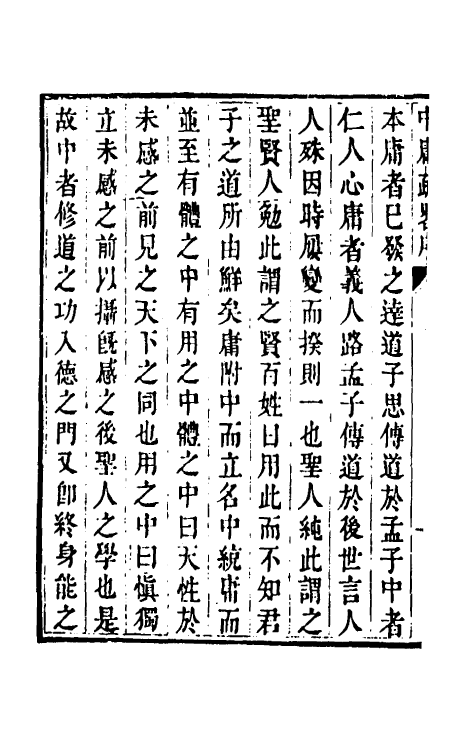 本庸者已發之達道子思傳道於孟子中者
仁人心庸者義人路孟子傳道於後世言人
人殊因時屢變而揆則一也聖人純此謂之
聖賢人勉此謂之賢百姓日用此而不知君
子之道所由鮮矣庸附中而立名中統庸而
並至有體之中有用之中體之中曰天性於
未感之前見之天下之同也用之中曰慎獨
立未感之前以攝旣感之後聖人之學也是
故中者修道之功入德之門又卽終身能之